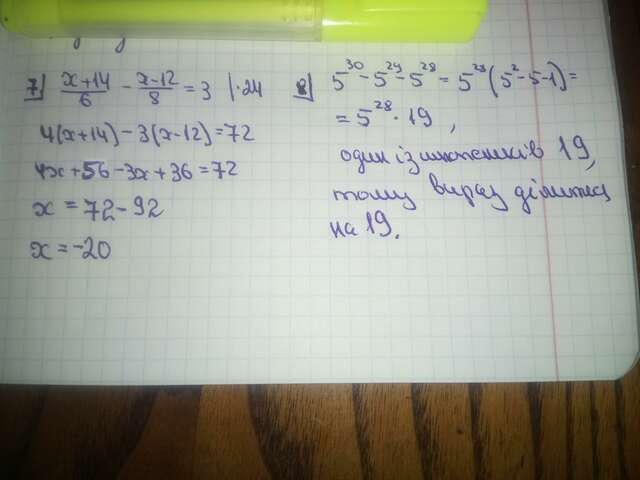 7) (x+14)/6 - (x-12)/8 = 3 |·24
4(x+14)-3(x-12)=72
4x+56-3x+36=72
x = 72-92
x = -20
8) 5³⁰-5²⁹-5²⁸ = 5²⁸(5²-5-1)=
= 5²⁸·19,
один із множників 19,
тому вираз ділиться
на 19.